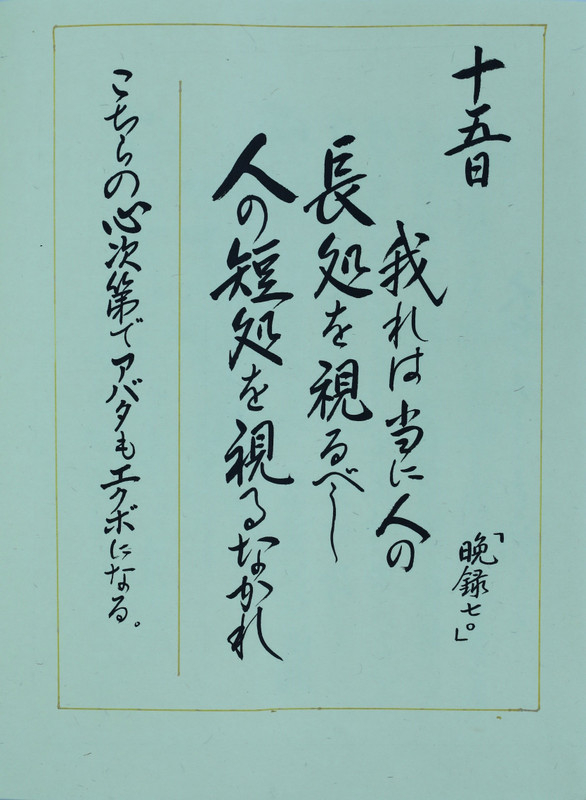 十五日
我れは当に人の
長処を視るべし
人の短処を視るなかれ
「晩録七〇」
こちらの心次第でアバタもエクボになる。